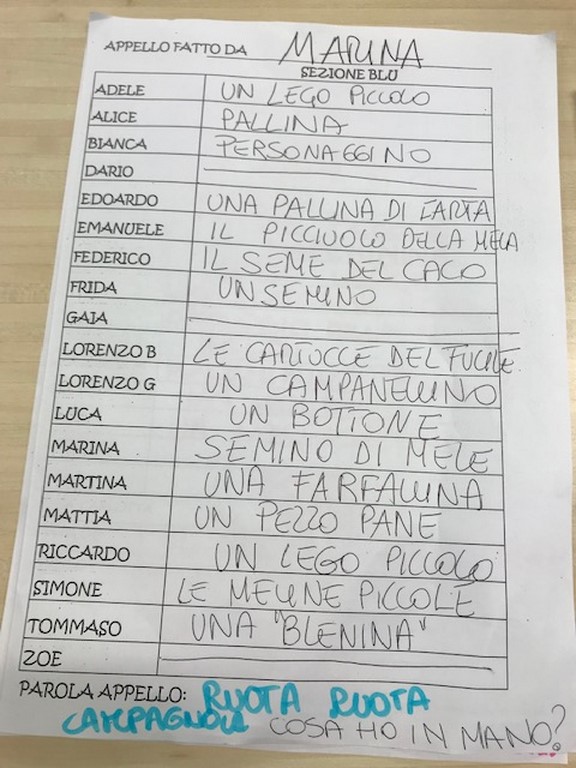 APPELLO FATTO DA MARINA
SEZIONE BLU
ADELE UN LEGO PICCOLO
ALICE PALLINA
BIANCA PERSONAGGINO
DARIO
EDOARDO UNA PALLINA DI CARTA
EMANUELE IL PICCIUOLO DELLA MELA
FEDERICO IL SEME DEL CACO
FRIDA UN SEMINO
GAIA
LORENZO B LE CARTUCCE DEL FUCILE
LORENZO G UN CAMPANELLINO
LUCA UN BOTTONE
MARINA SEMINO DI MELE
MARTINA UNA FARFALLINA
MATTIA UN PEZZO PANE
RICCARDO UN LEGO PICCOLO
SIMONE LE MELINE PICCOLE
TOMMASO UNA "BLENINA"
ZOE
PAROLA APPELLO: RUOTA RUOTA
CAMPAGNOLI COSA HO IN MANO?